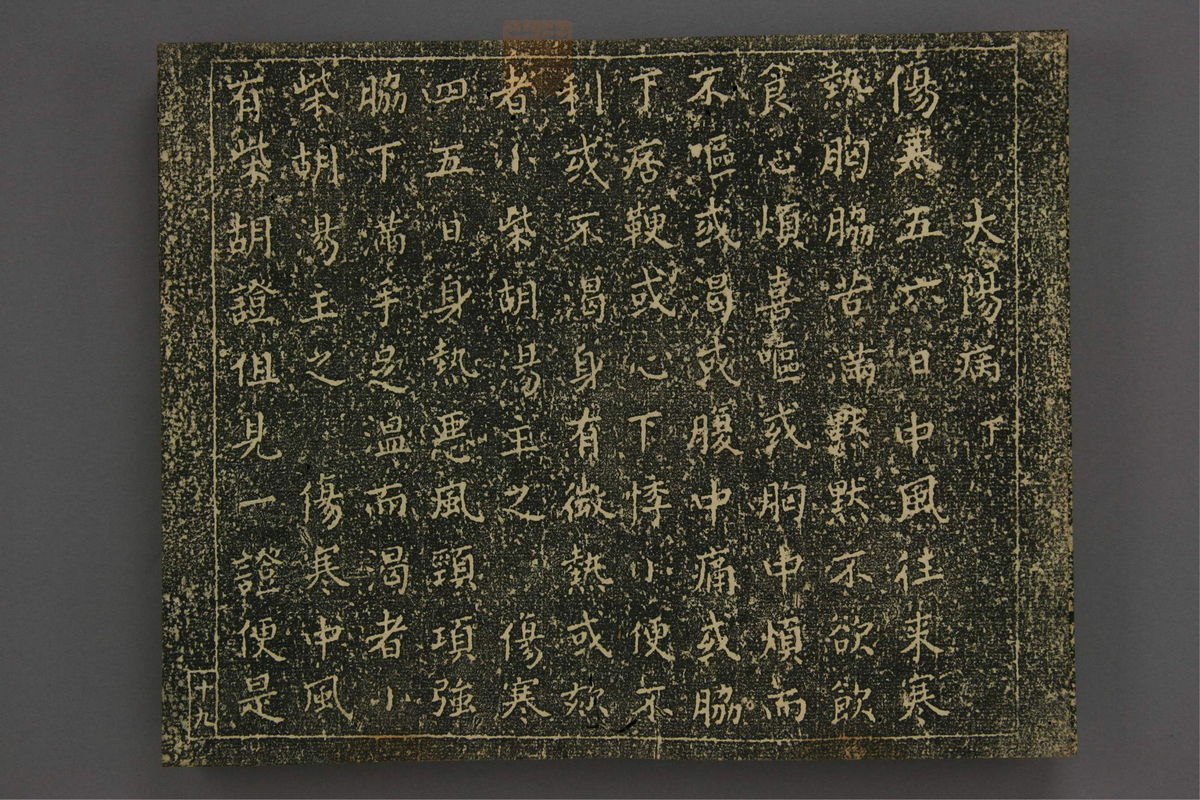 大陽病 下
傷寒五六日中風往来寒
熱胸脇苦満黙黙不欲飲
食心煩喜嘔或胸中煩而
不嘔或渇或腹中痛或脇
下痞鞕或心下悸小便不
利或不渇身有微熱或欬
者小柴胡湯主之 傷寒
四五日身熱悪風頸項強
脇下満手足温而渇者小
柴胡湯主之 傷寒中風
有柴胡證但見一證便是
十九